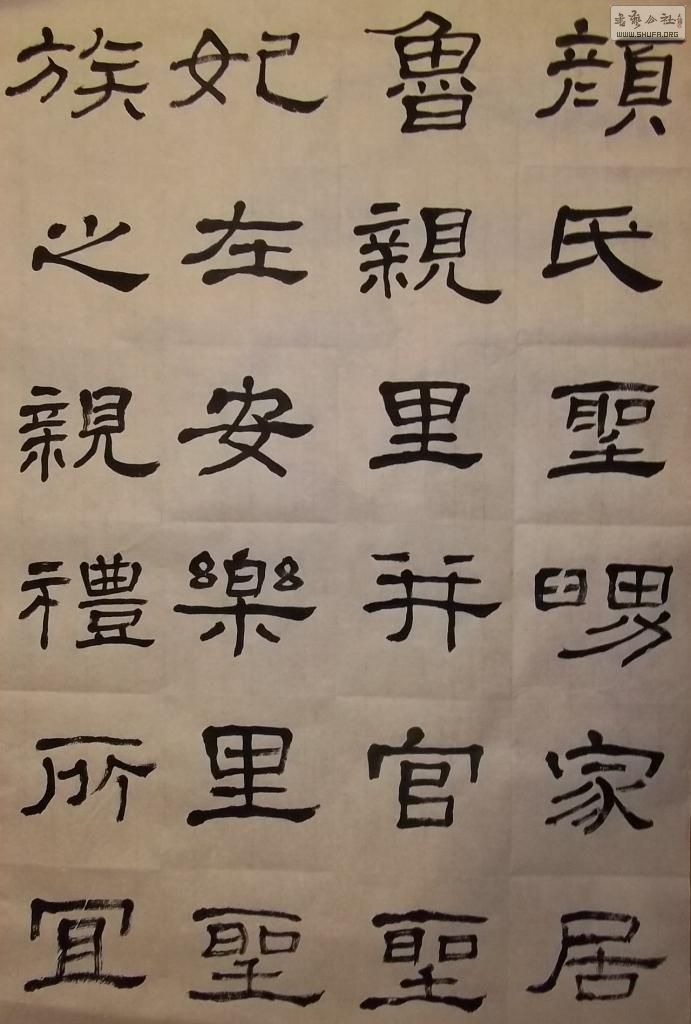 顏氏聖舅家居
魯親里并官聖
妃在安樂里聖
族之親禮所宜
書藝公社
WWW.SHUFA.ORG